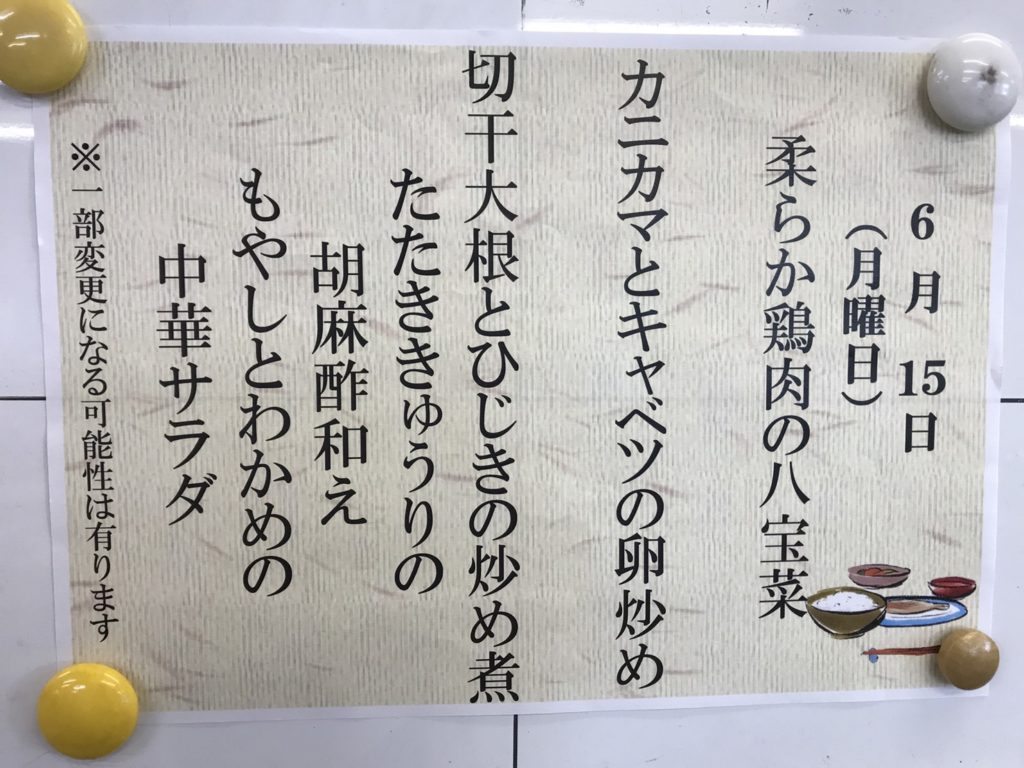 6月15日
（月曜日）
柔らか鶏肉の八宝菜
カニカマとキャベツの卵炒め
切干大根とひじきの炒め煮
たたききゅうりの
胡麻酢和え
もやしとわかめの
中華サラダ
※一部変更になる可能性は有ります